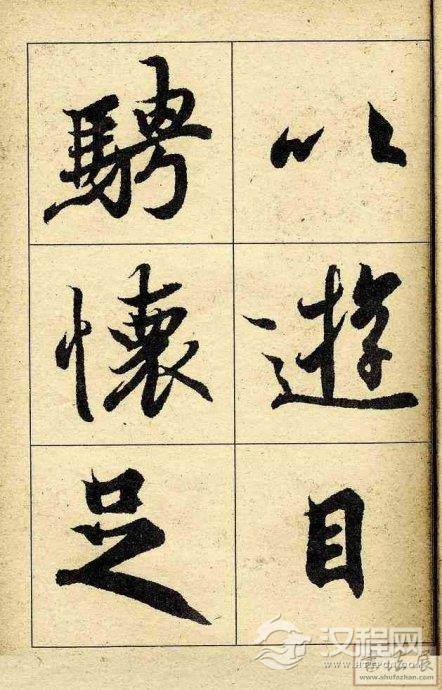 以遊目
騁懷足
汉程网
www.shufazhan.com